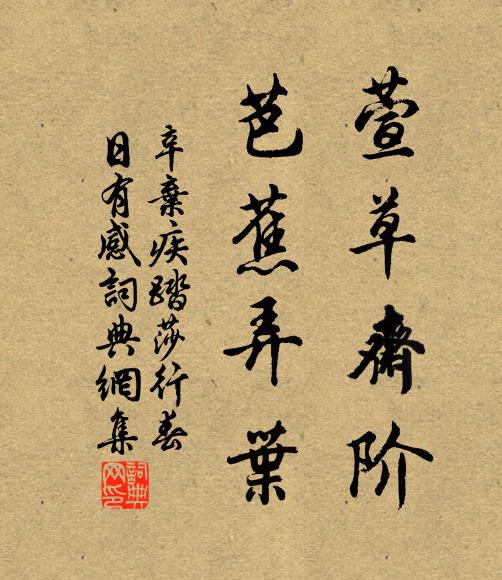 萱草齋阶
芭蕉弄葉
辛棄疾踏莎行春
日有感詞典網集
詞典網印